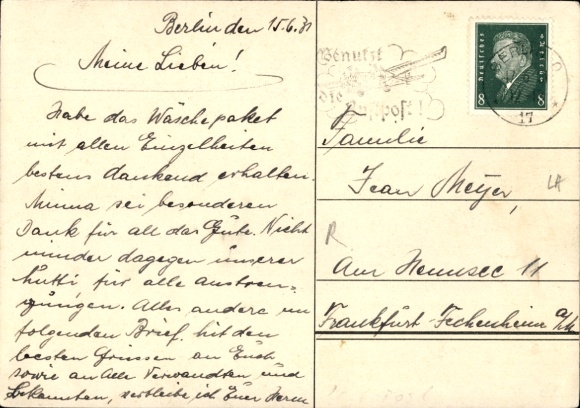 Berlin den 15.6.31
Meine Lieben!
Habe das Wäschepaket
mit allen Einzelheiten
bestens dankend erhalten.
Minna sei besonderen
Dank für all das Gute. Nicht
minder dagegen unserer
Mutti für alle Anstren-
gungen. Alles andere im
folgenden Brief. Mit den
besten Grüssen an Euch
sowie an alle Verwandten und
Bekannten, verbleibe ich Euer
Benutzt
die
Luftpost!
Deutsches Reich
8 8
BERLIN
17
Familie
Jean Meyer,
LA
R
Am Hennsee 11
Frankfurt-Fechenheim a/M